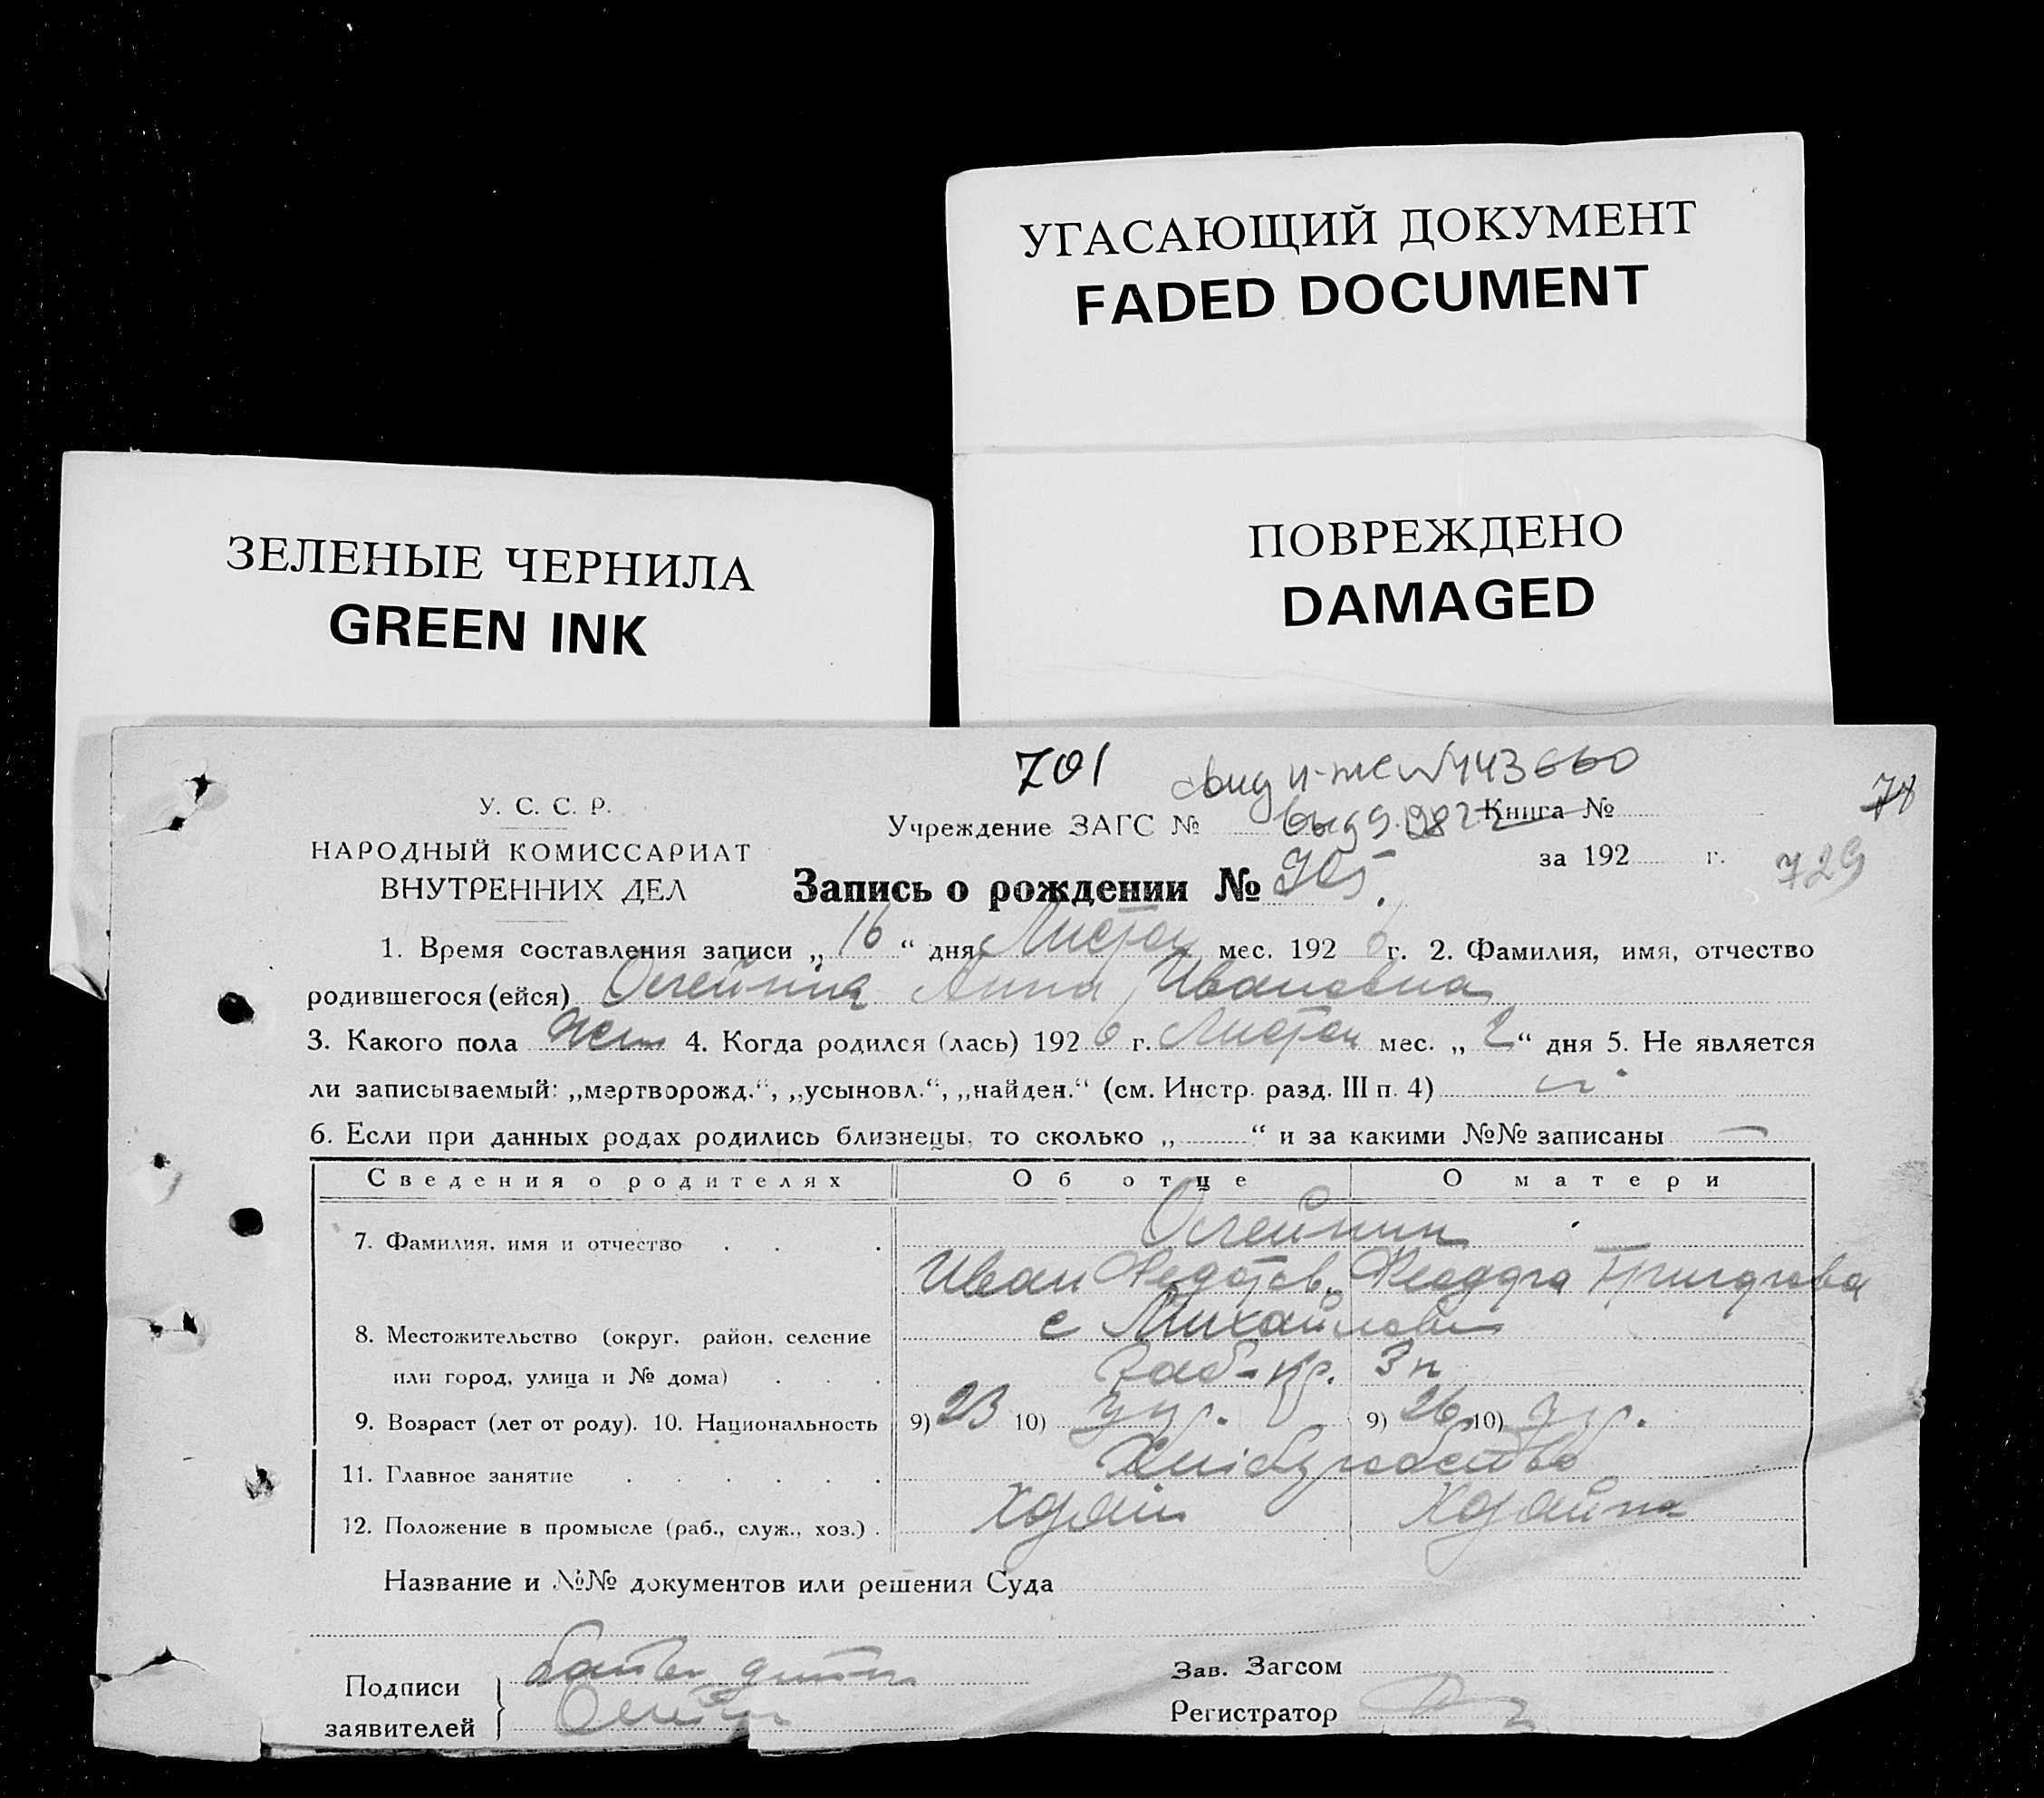 УГАСАЮЩИЙ ДОКУМЕНТ
FADED DOCUMENT
ЗЕЛЕНЫЕ ЧЕРНИЛА
GREEN INK
ПОВРЕЖДЕНО
DAMAGED
701
№ 443660
78
У. С. С. Р.
НАРОДНЫЙ КОМИССАРИАТ
ВНУТРЕННИХ ДЕЛ
Учреждение ЗАГС № Книга №
за 192 г.
729
Запись о рождении № 705.
1. Время составления записи „ 16 “ дня Листоп мес. 192 6 г. 2. Фамилия, имя, отчество
родившегося (ейся) Олейник Анна Ивановна
3. Какого пола жен 4. Когда родился (лась) 192 6 г. Листоп мес. „ 2 “ дня 5. Не является
ли записываемый: „мертворожд.“, „усыновл.“, „найден.“ (см. Инстр. разд. III п. 4)
6. Если при данных родах родились близнецы, то сколько „ “ и за какими №№ записаны —
Сведения о родителях Об отце О матери
7. Фамилия, имя и отчество Олейник
Иван Федотов.
8. Местожительство (округ, район, селение с Михайловка
или город, улица и № дома)
9. Возраст (лет от роду). 10. Национальность 9) 23 10) Укр. 9) 26 10) Укр.
11. Главное занятие Хліборобство
12. Положение в промысле (раб., служ., хоз.) Хозяін Хозяйка
Название и №№ документов или решения Суда
Подписи
заявителей
Зав. Загсом
Регистратор